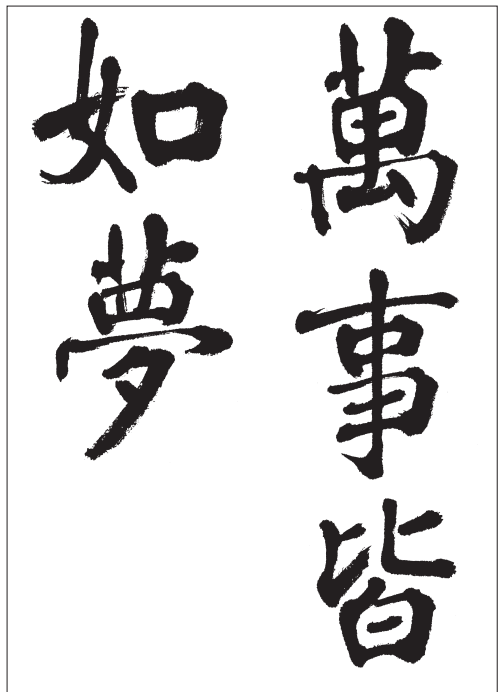 萬事皆
如夢